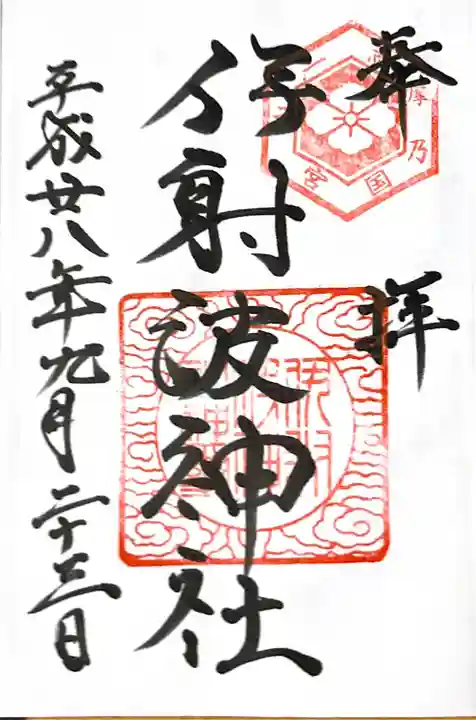 奉拝
摩乃国
宮
伊射波神社
平成廿八年九月二十三日